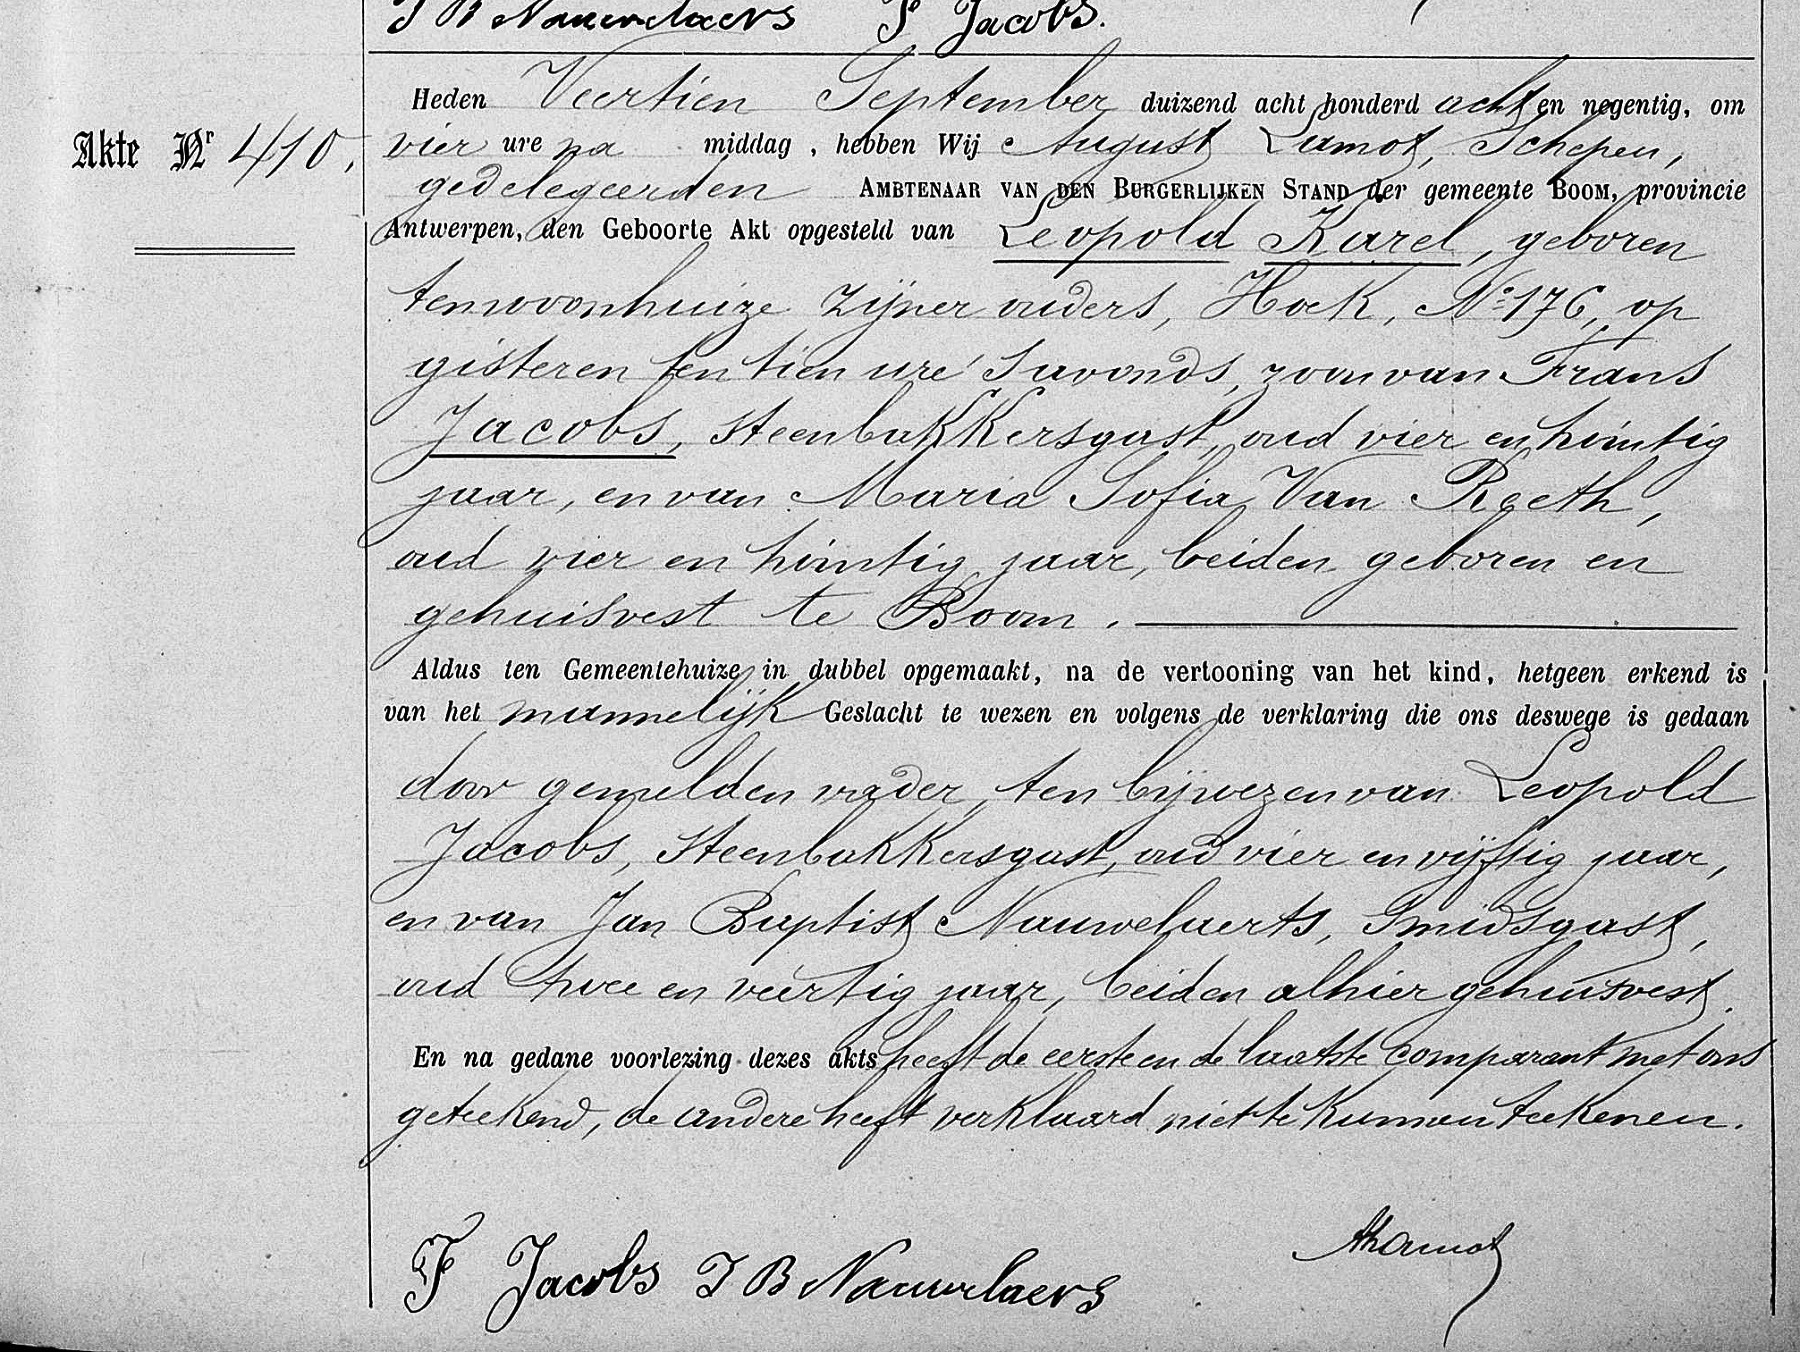 J B Nauwelaers F Jacobs.
Heden Veertien September duizend acht honderd acht en negentig, om
Akte Nr 410, vier ure na middag, hebben Wij August Lamot, Schepen,
gedelegeerden AMBTENAAR VAN DEN BURGERLIJKEN STAND der gemeente BOOM, provincie
Antwerpen, den Geboorte Akt opgesteld van Leopold Karel, geboren
tenwoonhuize zijner ouders, Hoek, No 176, op
gisteren ten tien ure 's avonds, zoon van Frans
Jacobs, steenbakkersgast, oud vier en twintig
jaar, en van Maria Sofia Van Reeth,
oud vier en twintig jaar, beiden geboren en
gehuisvest te Boom.
Aldus ten Gemeentehuize in dubbel opgemaakt, na de vertooning van het kind, hetgeen erkend is
van het mannelijk Geslacht te wezen en volgens de verklaring die ons deswege is gedaan
door gemelden vader, ten bijwezen van Leopold
Jacobs, steenbakkersgast, oud vier en vijftig jaar,
en van Jan Baptist Nauwelaerts, smidsgast,
oud twee en veertig jaar, beiden alhier gehuisvest.
En na gedane voorlezing dezes akts heeft de eerste en de laatste comparant met ons
geteekend, de andere heeft verklaard niet te kunnen teekenen.
F Jacobs J B Nauwelaers ALamot